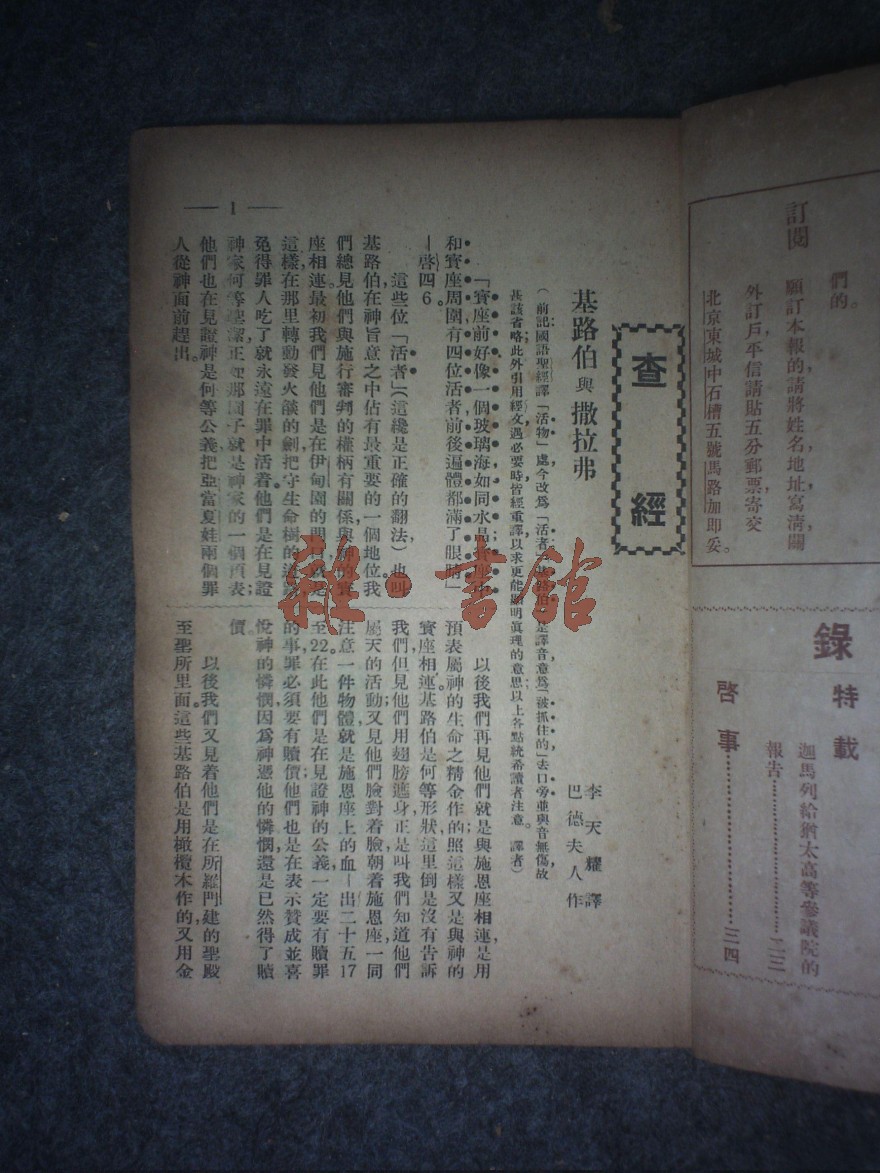 們的。
訂閱
願訂本報的請將姓名地址寫清關
外訂戶,平信請貼五分郵票寄交
北京東城中石槽五號馬路加即妥。
錄
特載
迦馬列給猶太高等參議院的
報告…………二二
啓事…………三四
查經
基路伯與撒拉弗
李天耀譯
巴德夫人作
(前記)國語聖經譯「活物」處今改爲「活者」是譯音意爲「被抓住的」去口旁並與音無傷故
甚該省略此外引用經文遇必要時皆經重譯以求更能顯明眞理的意思以上各點統希讀者注意。 譯者)
「寶座前好像一個玻璃海如同水晶寶座中
和寶座周圍有四位活者前後遍體都滿了眼睛」
—啓四6。
這些位「活者」(這纔是正確的翻法)也叫
基路伯在神旨意之中佔有最重要的一個地位我
們總見他們與施行審判的權柄有關係與神的寶
座相連。最初我們見他們是在伊甸園的門口就是
這樣在那里轉動發火燄的劍把守生命樹的道路
免得罪人吃了就永遠在罪中活着。他們是在見證
神家何等聖潔正如那園子就是神家的一個預表;
他們也在見證神是何等公義把亞當夏娃兩個罪
人從神面前趕出。
以後我們再見他們就是與施恩座相連是用
預表屬神的生命之精金作的照這樣又是與神的
寶座相連。基路伯是何等形狀這里倒是沒有告訴
我們但見他們用翅膀遮身正是叫我們知道他們
屬天的活動;又見他們臉對着臉朝着施恩座一同
注意一件物體就是施恩座上的血—出二十五17
至22。在此他們是在見證神的公義一定要有贖罪
的事罪必須要有贖價;他們也是在表示贊成並喜
悅神的憐憫因爲神憑他的憐憫還是已然得了贖
價。
以後我們又見着他們是在所羅門建的聖殿
至聖所里面。這些基路伯是用橄欖木作的,又用金
1
雜·書館